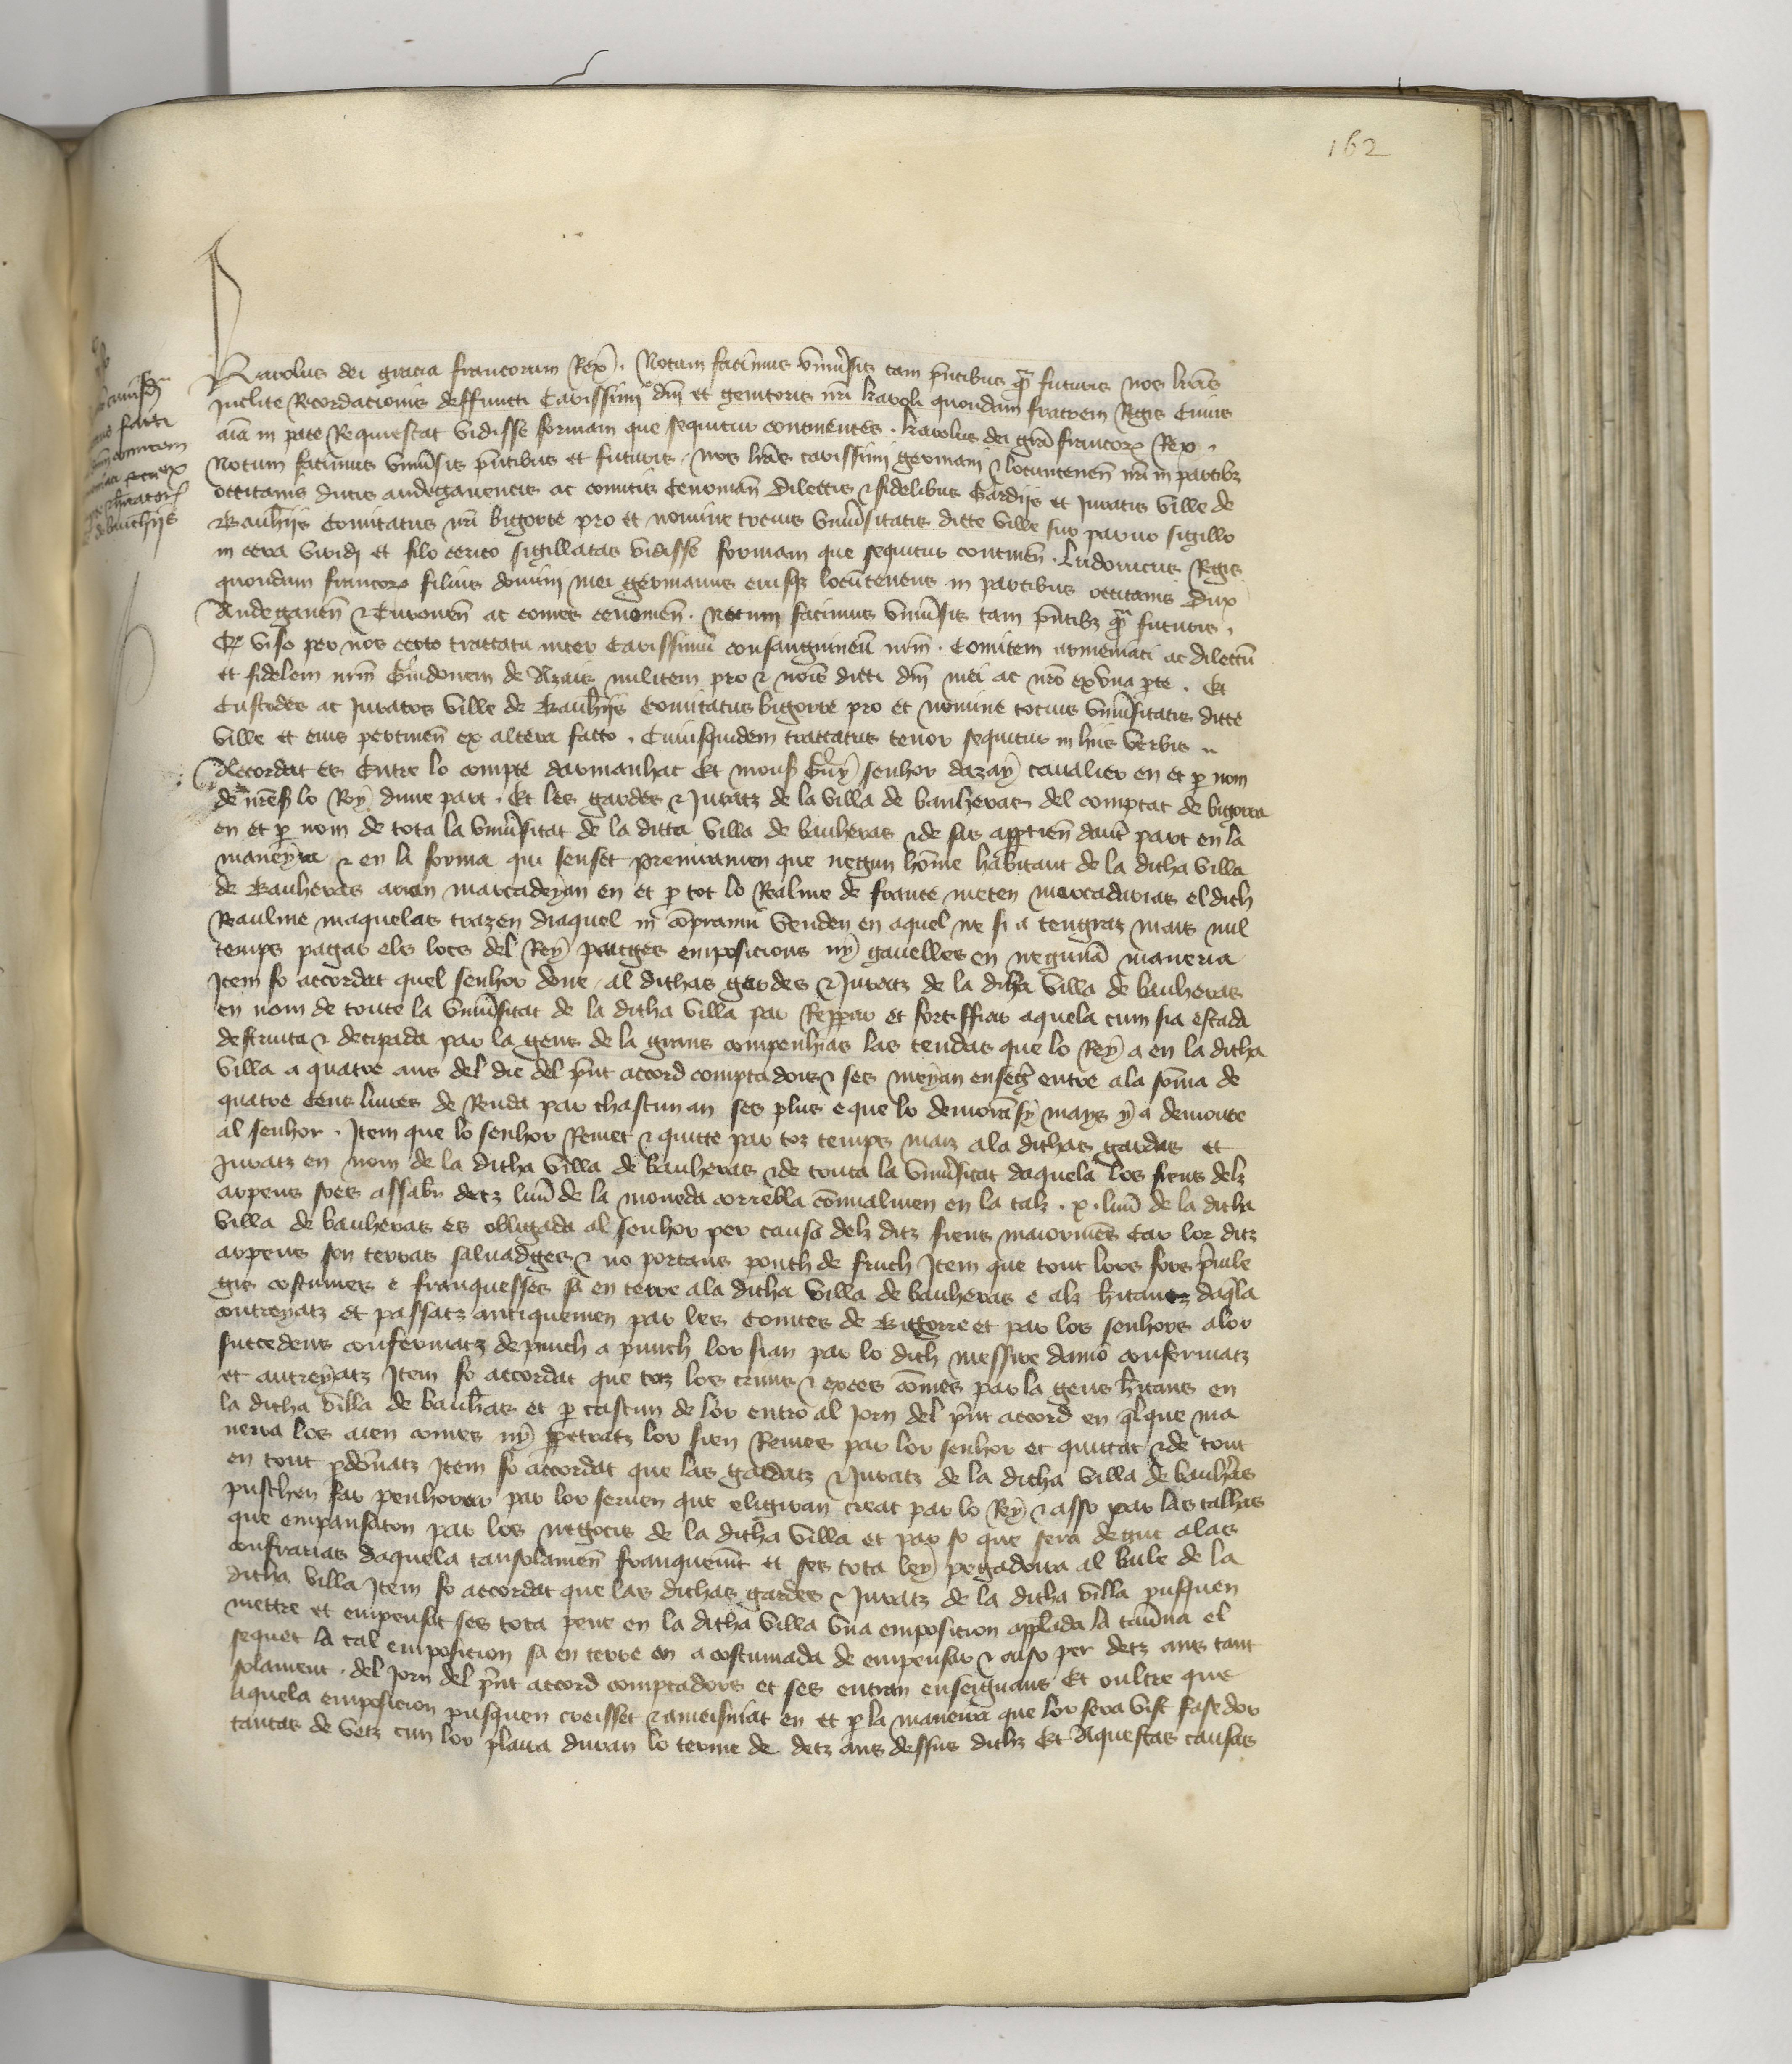 162
Karolus dei gracia francorum Rex. Notum facimus vniũsis tam pñtibus q̃ futuris nos lr̃as
Inclite Recordacionis deffuncti Carissimi dñi et genitoris nr̃i karoli quondam francorum Regis Cuius
aĩa in pace Requiescat vidisse formam que sequitur continentes. Karolus dei grã francorꝝ Rex.
Notum facimus vniũsis pñtibus et futuris. nos lr̃as carissimi germani ⁊ locumtenen̄ nr̃i in partibꝫ
occitanis ducis andegauencis ac comitis Cenoman̄ dilectis ⁊ fidelibus Gardijs et Juratis ville de
Banherijs Comitatus nr̃i bigorre pro et nomine tocius vniũsitatis dicte ville suo paruo sigillo
in cera viridj et filo cerico sigillatas vidisse formam que sequitur continen̄. Ludouicus Regis
quondam francorꝝ filius domini mei germanus eiusqꝫ locũtenens in partibus occitanis Dux
Andegauen̄ ⁊ Turonen̄ ac comes cenomen̄. Notum facimus vniũsis tam pñtibꝫ q̃ futuris.
Qꝫ viso per nos certo tractatu inter Carissimũ consanguineũ nr̃m. Comitem armeniaci ac dilectũ
et fidelem nr̃m Guidonem de Azais militem pro ⁊ noĩe dicti dñi mei ac nr̃o ex vna pte. Et
Custodes ac Juratos ville de Banherijs Comitatus bigorre pro et nomine tocius vniũsitatis dicte
ville et eius pertinen̄ ex altera facto. Cuiusquidem tractatus tenor sequitur in hijs verbis
Accordat es Entre lo compte darmanhac Et mons̃ Guy senhor dazay caualier en et p nom
de nr̃es̃ lo Rey dune part. Et les gardes ⁊ Juratz de la villa de banheras del comptat de bigorra
en et p nom de tota la vniũsitat de la dicta villa de banheras ⁊ de sas apptien̄ daut̃ part en la
maneyra ⁊ en la forma qui senset premiramen que negun hõme habitant de la ditha villa
de Banheras anan marcadeyan en et p tot lo Realme de france meten mercadurias el dich
Reaulme maquelas trazen diaquel ni cõpramn venden en aquel ne si a tengraz mais nul
temps pagar els locs del Rey peatges emposicions ny gauelles en negunã maneria
Item so accordat quel senhor done al dithas gardes ⁊ Juratz de la ditha villa de banheras
en nom de toute la vniũsitat de la ditha villa par Reppar et fortiffiar aquela cum sia estada
destruita ⁊ decipada par la gens de la grans companhias las tendas que lo Rey a en la ditha
villa a quatre ans del die del pñt accord comptadors ⁊ ses meyan enseg̃ entre ala sõma de
quatre cens liures de Renda par chascun an ses plus e que lo demorã sy mays y a demoure
al senhor. Item que lo senhor Remet ⁊ quitte par toz temps maiz ala dithas gardas et
Juratz en nom de la ditha villa de banheras ⁊ de touta la vniũsitat daquela los fieus delz
arpens soes assab̃r detz liur̃ de la moneda correbla cõmialmen en la talz. x. liur̃ de la ditha
villa de banheras es obligada al senhor per causa delz ditz fieus maiormẽs Car lor ditz
arpens son terras saluadges ⁊ no portans ponch de fruch Item que tout lors fors p̃uile
gis costumes e franquesses sa en terre ala ditha villa de banheras e alz h̃itantz daq̃la
autreyatz et passatz antiquemen par les comtes de Bigorre et par los senhors alor
succedens confermatz de punch a punch lor sian par lo dich messire danio confermatz
et autreyatz Item so accordat que toz los crims ⁊ exces cõmes par la gens h̃itans en
la ditha villa de banh̃as et p cascun de lor entro al Jorn del pñt accord en q̃lque ma
nera los aien comes ny ppetratz lor sien Remes par lor senhor et quittat ⁊ de tout
en tout pdõnatz Item so accordat que las gardatz ⁊ Juratz de la ditha villa de banh̃as
puschen far penhorar par lor seruen que eligiran creat par lo Rey ⁊ asso par las talhas
que empausaron par los negocis de la ditha villa et par so que sera degut alas
confrarias daquela tansolamen̄ franquem̃t et ses tota ley pegadoira al baile de la
ditha villa Item so accordat que las dithas gardes ⁊ Juratz de la ditha villa pusquen
mettre et empensat ses tota pene en la ditha villa vna emposicion applada la tauũna el
sequet la cal emposicion sa en terre en a costumada de empensar ⁊ aiso per detz ans tant
solament. del Jorn del pñt accord comptadors et ses entran enseignans Et oultre que
aquela emposicion pusquen creisset ⁊ ameisniat en et p la maneira que lor sera vist fasedor
tantas de vetz cun lor plaira duran lo terme de detz ans dessus dithz Et Aquestas causas